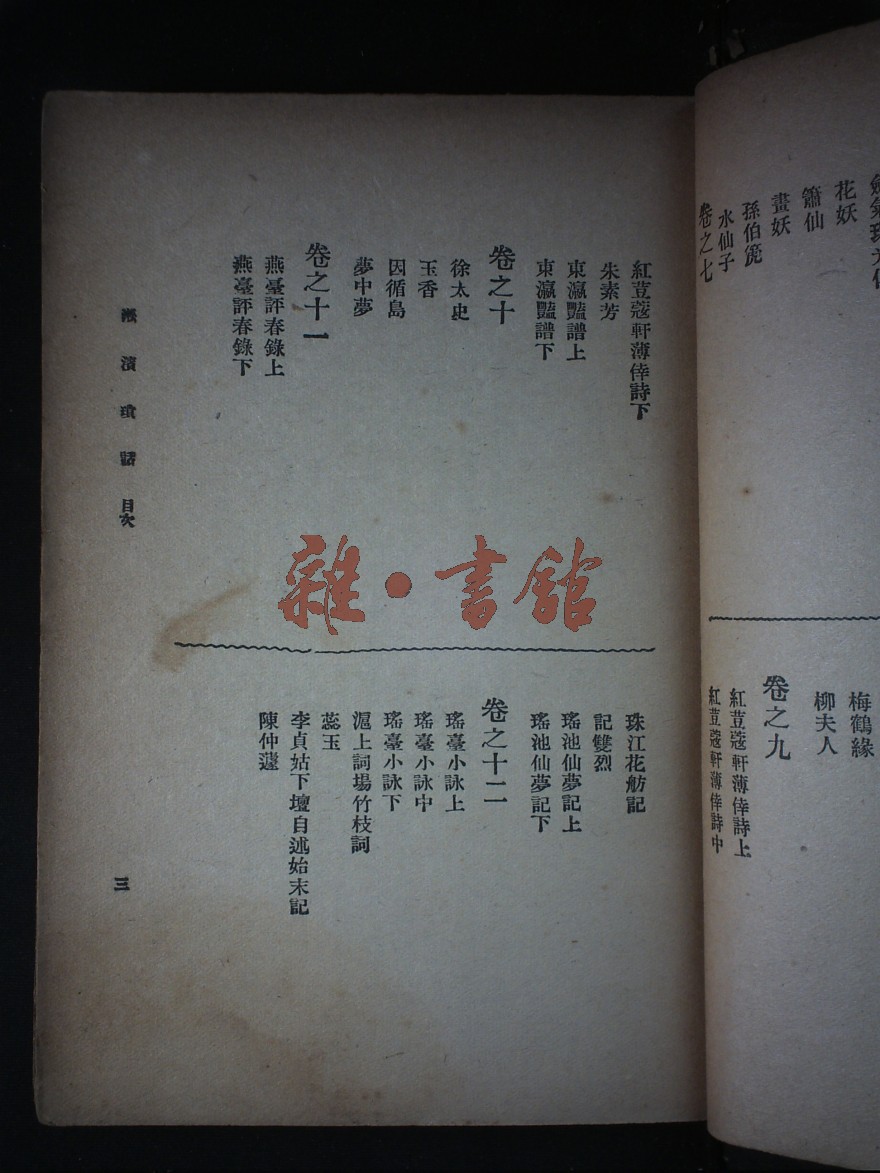 花妖
簫仙
畫妖
孫伯篪
水仙子
卷之七
梅鶴緣
柳夫人
卷之九
紅荳蔻軒薄倖詩上
紅荳蔻軒薄倖詩中
紅荳蔻軒薄倖詩下
朱素芳
東瀛豔譜上
東瀛豔譜下
卷之十
徐太史
玉香
因循島
夢中夢
卷之十一
燕臺評春錄上
燕臺評春錄下
珠江花舫記
記雙烈
瑤池仙夢記上
瑤池仙夢記下
卷之十二
瑤臺小詠上
瑤臺小詠中
瑤臺小詠下
滬上詞場竹枝詞
蕊玉
李貞姑下壇自述始末記
陳仲蘧
淞濱瑣話 目次
三
雜·書館